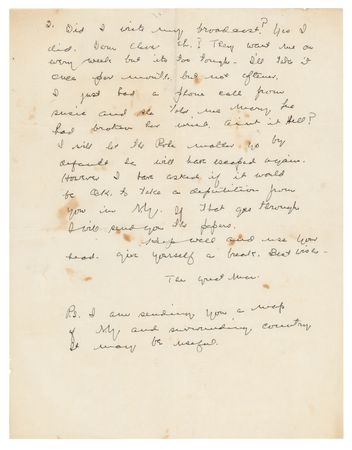 2. Did I write my broadcast? Yes I
did. Damn clever eh.? They want me on
every week but its too tough. I'll take it
once per month, but not oftener.
I just had a phone call from
Susie and she told me Mary Lee
had broken her wrist. Aint it Hell?
I will let the matter go by
default he will have escaped again.
However I have asked if it would
be O.K. to take a deposition from
you in N.Y. If that goes through
I will send you the papers.
Keep well and use your
head. give yourself a break. Best wishes -
The Great Man.
P.S. I am sending you a map
of N.Y. and surrounding country
It may be useful.